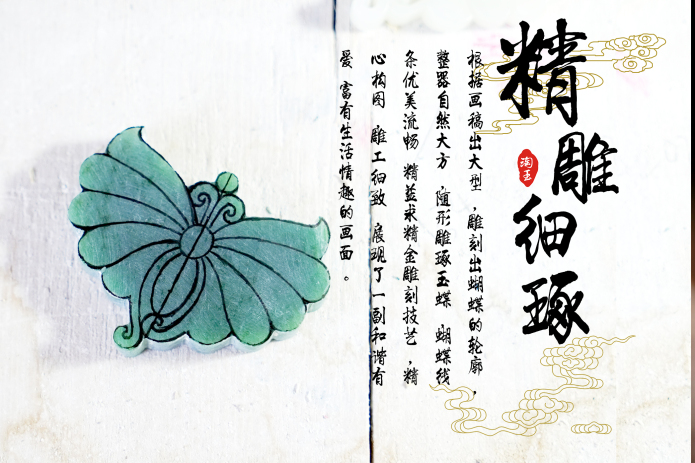 精雕细琢
淘玉
根据画稿出大型，雕刻出蝴蝶的轮廓，
整器自然大方 随形雕琢玉蝶 蝴蝶线
条优美流畅 精益求精金雕刻技艺，精
心构图 雕工细致 展现了一副和谐有
爱 富有生活情趣的画面。